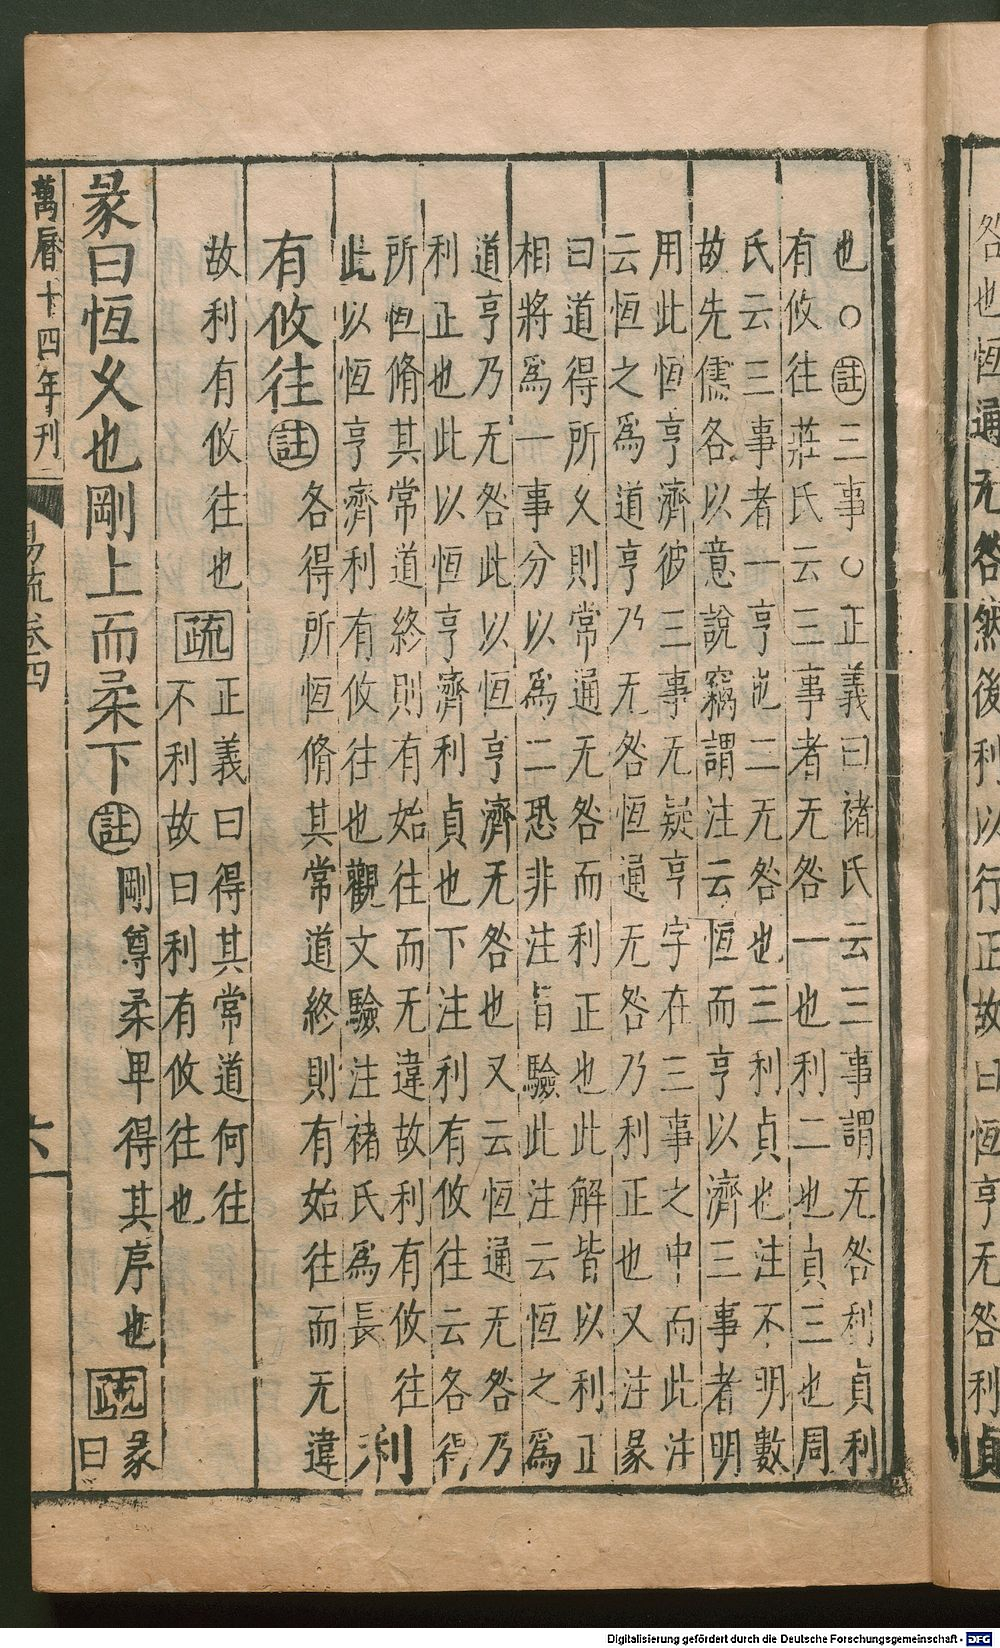 咎也恒通无咎然後利以行正故曰恒亨无咎利貞
也○註三事○正義曰褚氏云三事謂无咎利貞利
有攸往莊氏云三事者无咎一也利二也貞三也周
氏云三事者一亨也二无咎也三利貞也注不明數
故先儒各以意說竊謂注云恒而亨以濟三事者明
用此恒亨濟彼三事无疑亨字在三事之中而此注
云恒之爲道亨乃无咎恒通无咎乃利正也又注彖
曰道得所久則常通无咎而利正也此解皆以利正
相將爲一事分以爲二恐非注旨驗此注云恒之爲
道亨乃无咎此以恒亨濟无咎也又云恒通无咎乃
利正也此以恒亨濟利貞也下注利有攸往云各得
所恒脩其常道終則有始往而无違故利有攸往
此以恒亨濟利有攸往也觀文驗注褚氏爲長
利
有攸往註各得所恒脩其常道終則有始往而无違
故利有攸往也疏正義曰得其常道何往
不利故曰利有攸往也
彖曰恒久也剛上而柔下註剛尊柔卑得其序也疏彖
曰
萬曆十四年刊
易疏卷四
六
Digitalisierung gefördert durch die Deutsche Forschungsgemeinschaft - DFG